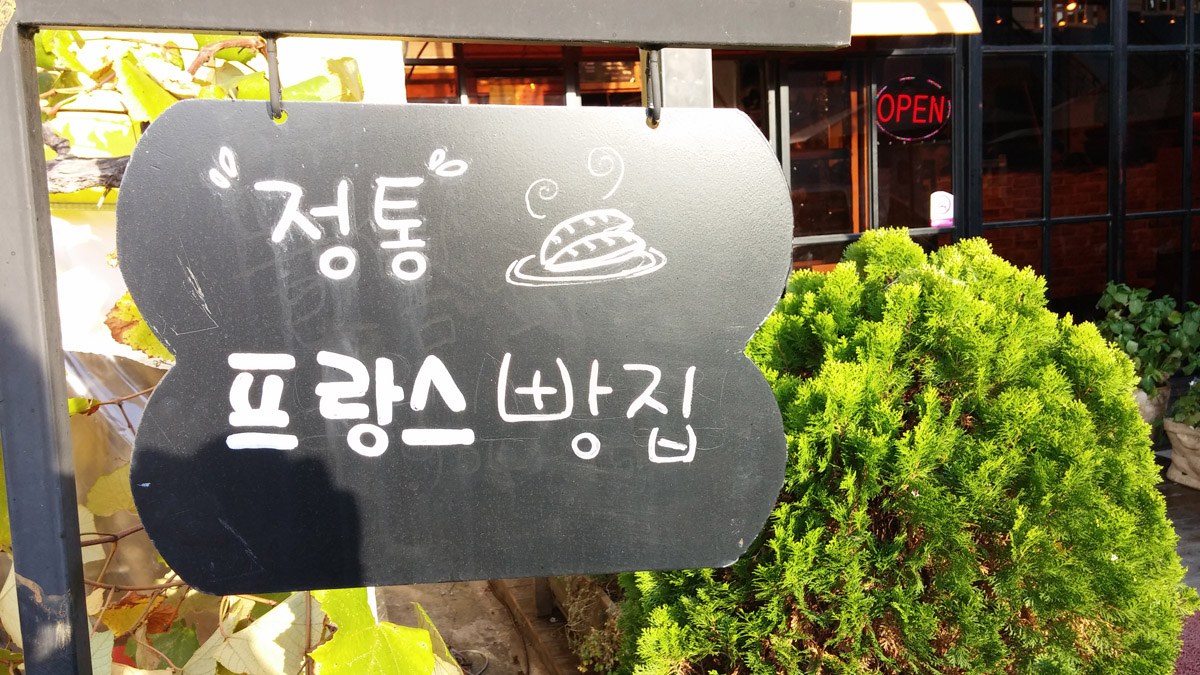 "정통"
프랑스 빵집
OPEN